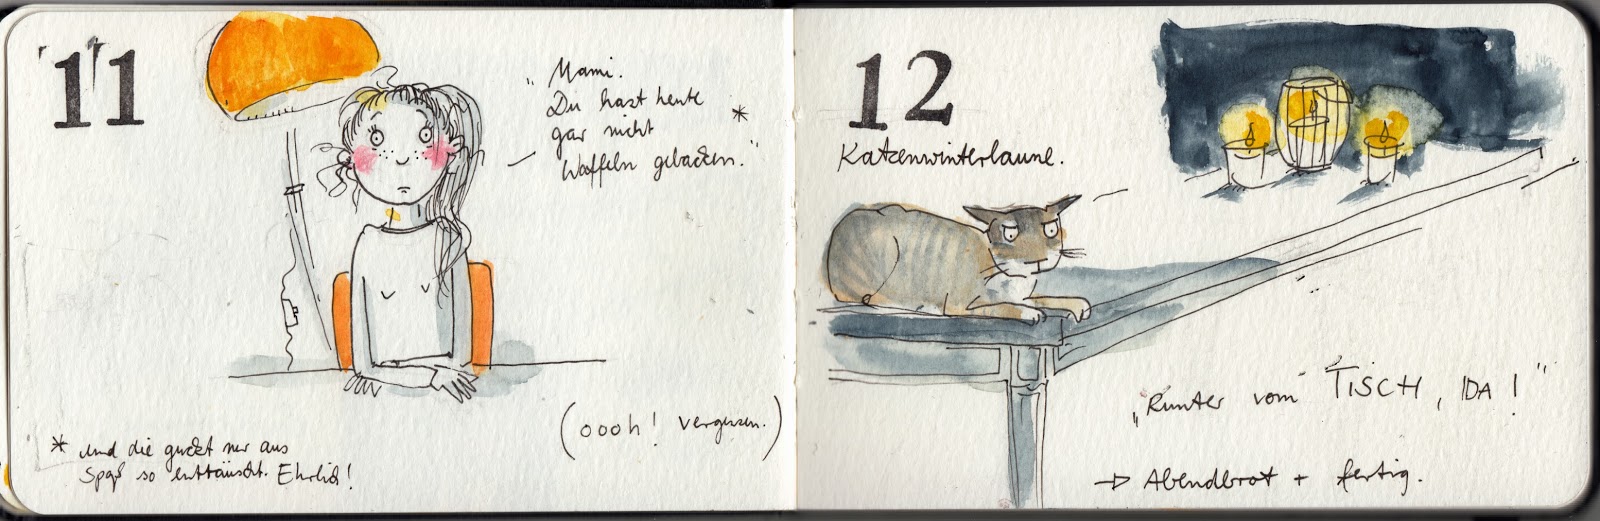 11
„Mami.
Du hast heute
gar nicht *
Waffeln gebacken.“
(oooh! vergessen.)
* und die guckt nur aus
Spaß so enttäuscht. Ehrlich!
12
Katzenwinterlaune.
„Runter vom TISCH, IDA!“
→ Abendbrot + fertig.